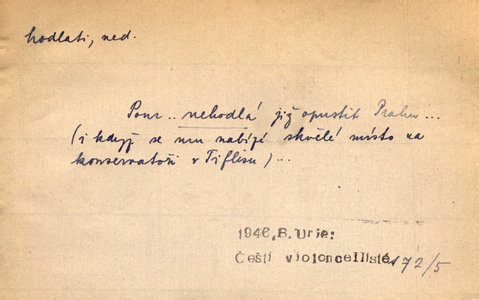 hodlati, ned.
Pour.. nehodlá již opustit Prahu...
(i když se mu nabízí skvělé místo na
konservatoři v Tiflisu)...
1946, B. Urie:
Čeští violoncellisté 172/5